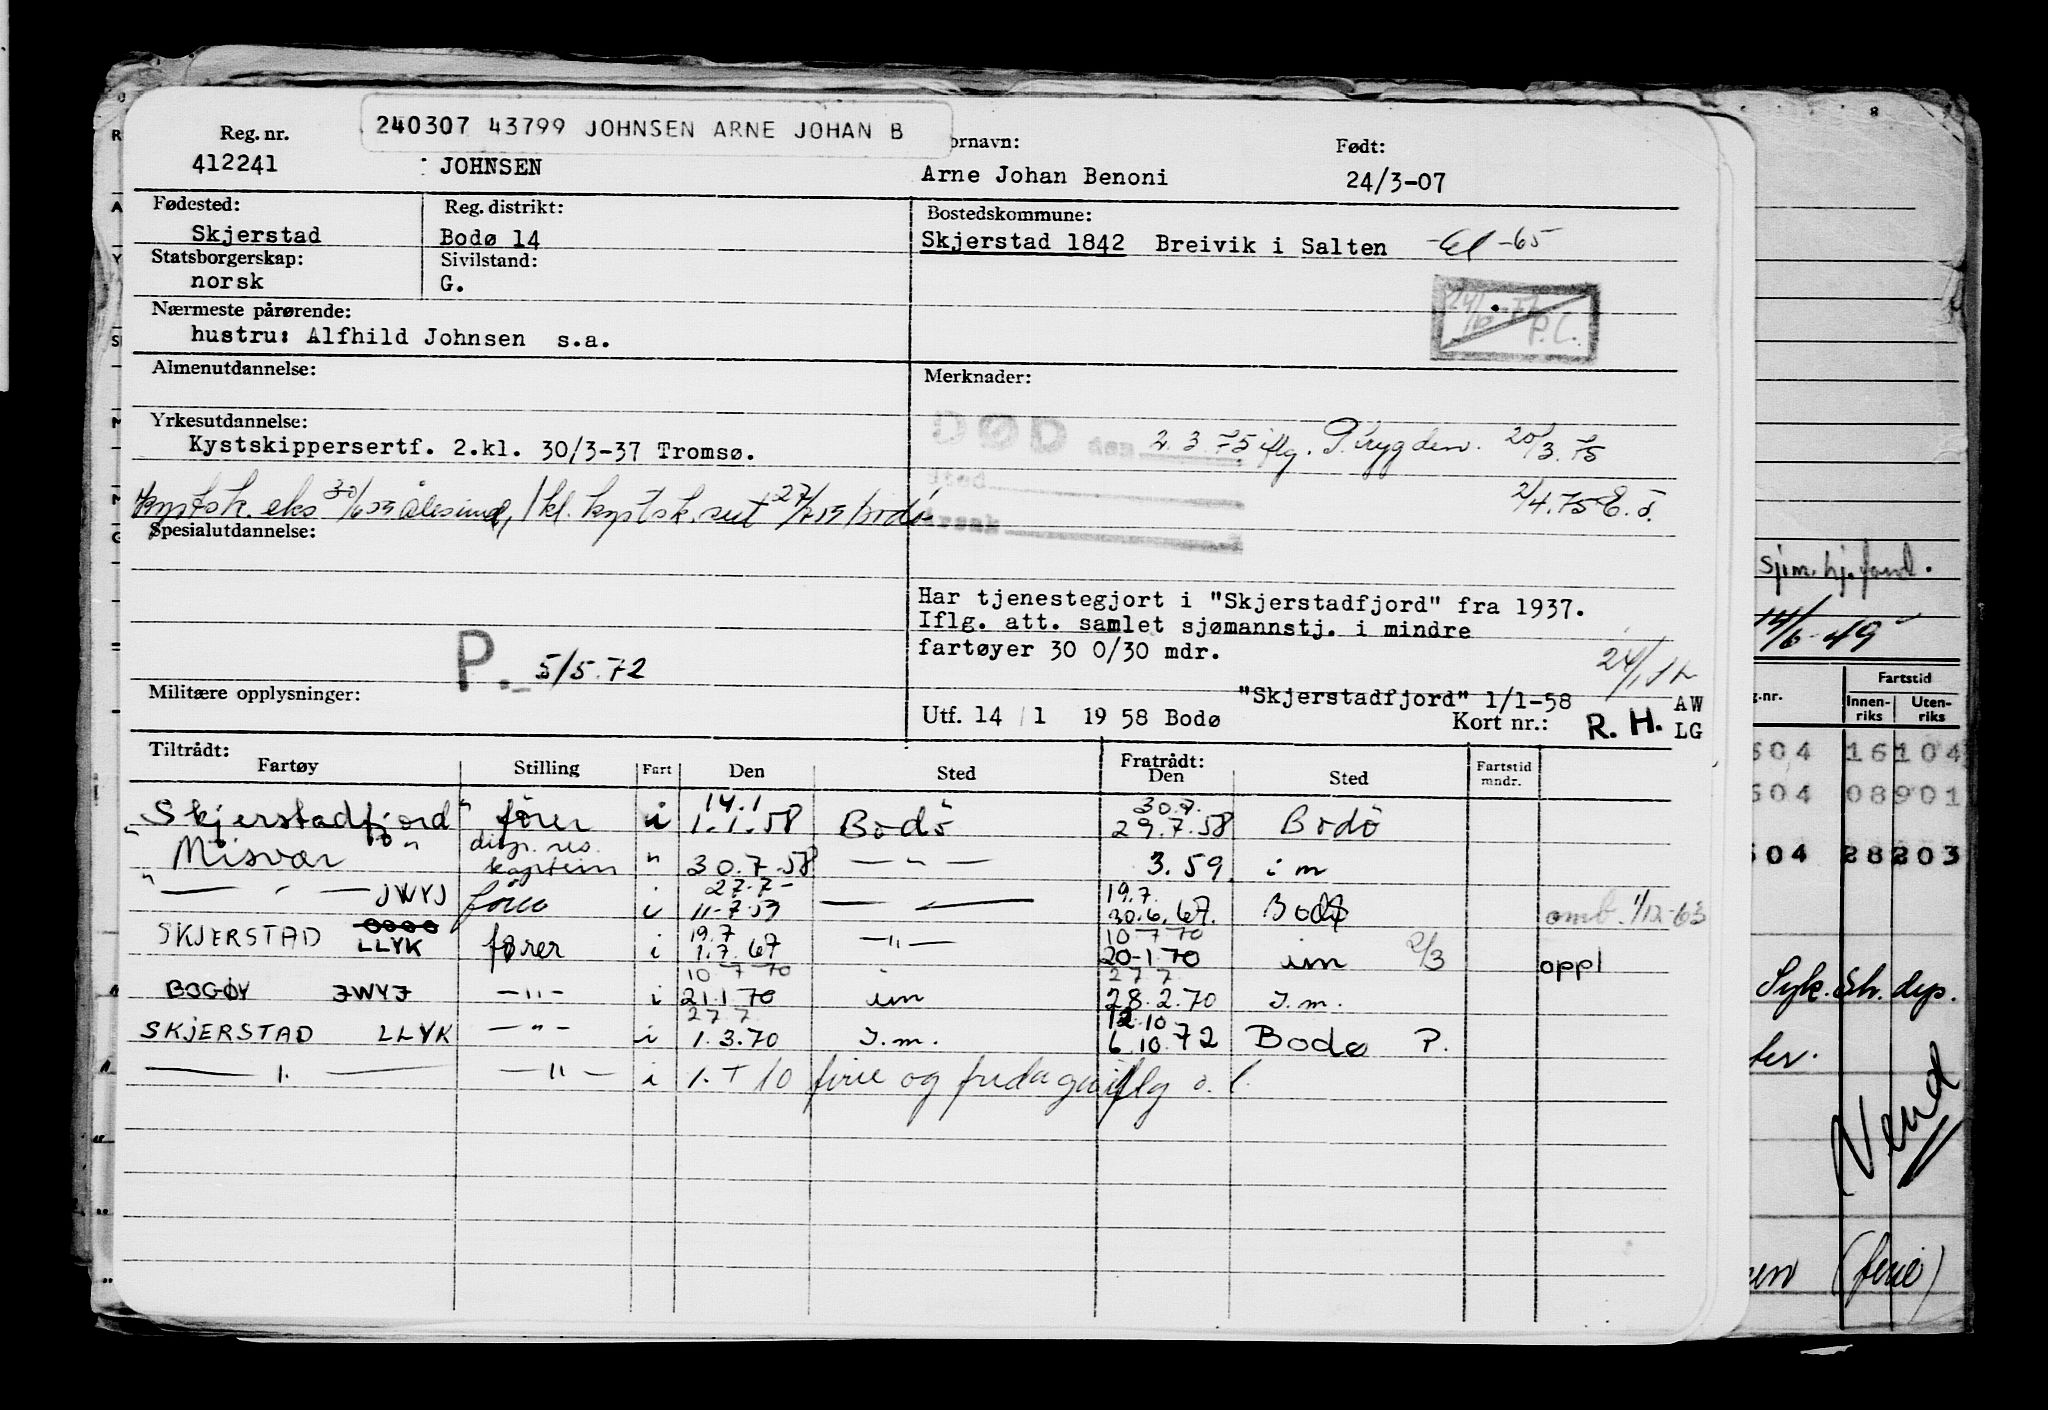 240307 43799 JOHNSEN ARNE JOHAN B
Reg. nr. ornavn: Født:
412241 JOHNSEN Arne Johan Benoni 24/3-07
Fødested: Reg. distrikt: Bostedskommune:
Skjerstad Bodø 14 Skjerstad 1842 Breivik i Salten -65
Statsborgerskap: Sivilstand:
norsk G.
Nærmeste pårørende:
hustru: Alfhild Johnsen s.a.
P.C.
Almenutdannelse: Merknader:
Yrkesutdannelse:
DØD den 2.3.75 iflg. Trygden. 20/3.75
Kystskippersertf. 2.kl. 30/3-37 Tromsø.
Sted
2/4.75 E.
kystsk. eks 30/6 Ålesund, 1 kl. kystsk. 27/ Bodø
Årsak
Spesialutdannelse:
Har tjenestegjort i "Skjerstadfjord" fra 1937.
Iflg. att. samlet sjømannstj. i mindre
fartøyer 30 0/30 mdr.
P. 5/5.72
Militære opplysninger:
"Skjerstadfjord" 1/1-58 AW
Utf. 14 / 1 19 58 Bodø Kort nr.: R. H. LG
Tiltrådt: Fratrådt:
Fartøy Stilling Fart Den Sted Den Sted Fartstid mndr.
14.1 30.7.
"Skjerstadfjord" fører i 1.1.58 Bodø 29.7.58 Bodø
"Misvær" kaptein " 30.7.58 — " — 3.59 i m
27.7- 19.7.
" — " — JWYJ i 11-7.59 — 30.6.67. Bodø omb. 1/12-63
19.7 10 7 70
SKJERSTAD LLYK fører i 1.7.67 — " — 20-1 70 im 2/3 oppl
10 7 70 27 7
BOGØY JWYJ — " — i 21.1 70 im 28.2.70 I.m.
27 7 12 10
SKJERSTAD LLYK — " — i 1.3.70 I.m. 6.10.72 Bodø P.
— " — — " — i 1. + 10 ferie og iflg
sjm. hj. fond.
14/6-49
g.nr. Fartstid
Innen-riks Uten-riks
604 16104
604 08901
604 28203
Syk. dep.
Vend
(ferie)